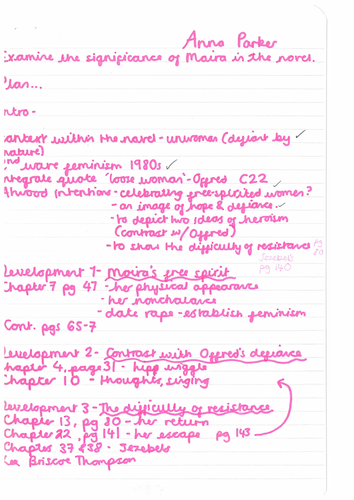 Anna Parker
Examine the significance of Maira in the novel.
Plan...
Intro -
context within the novel - unwomen (defiant by
nature)
2nd wave feminism 1980s
Integrate quote 'loose woman' - Offred C22
Atwood Intentions - celebrating free-spirited women?
- an image of hope & defiance.
- to depict two ideas of heroism
(contrast w/ Offred)
- to show the difficulty of resistance pg 80
Jezebels
pg 140
Development 1 - Maira's free spirit
Chapter 7 pg 47 - her physical appearance
- her nonchalance
- date rape - establish feminism
Cont. pgs 65-7
Development 2 - Contrast with Offred's defiance
Chapter 4, page 31 - hip wiggle
Chapter 10 - thoughts, singing
Development 3 - The difficulty of resistance
Chapter 13, pg 80 - her return
Chapter 22, pg 141 - her escape pg 143
Chapter 37 & 38 - Jezebels
Lea Briscoe Thompson